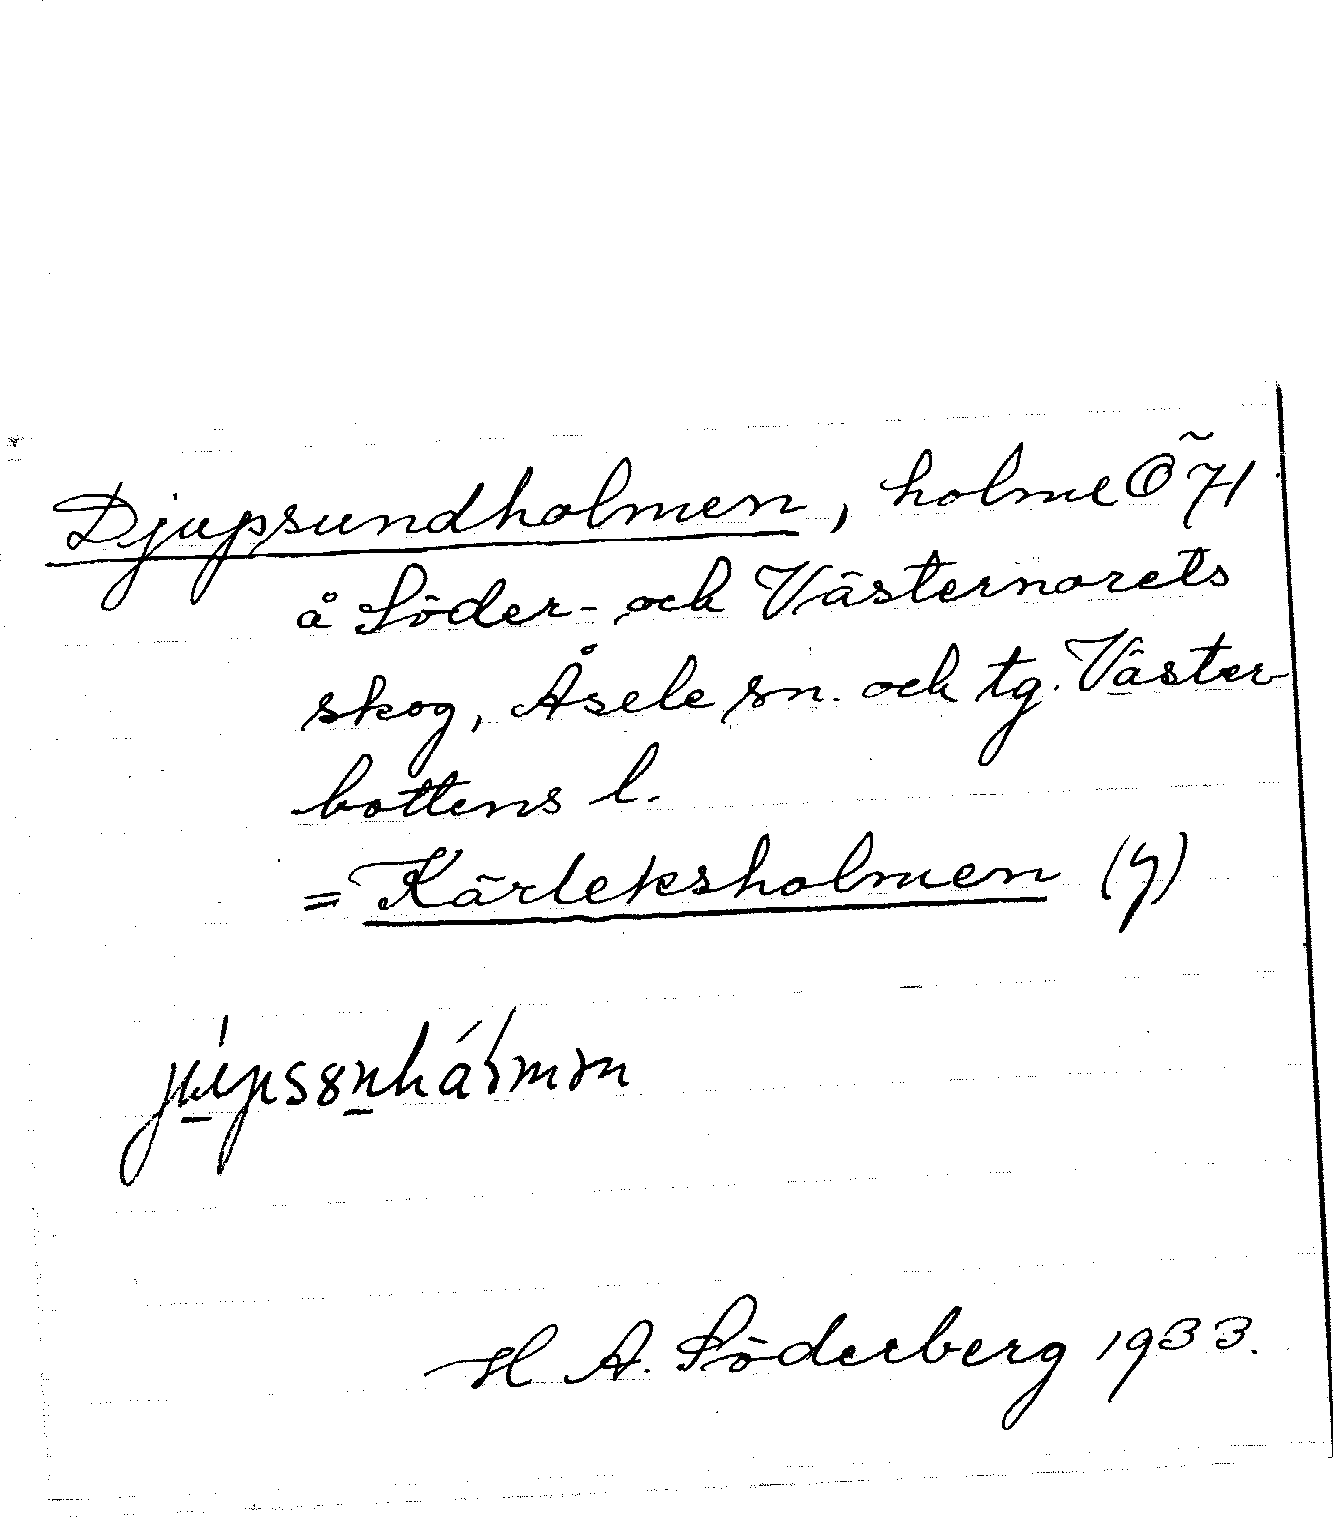 Djupsundholmen, holme Ö 71
å Söder- och Västernorets
skog, Åsele sn. och tg. Väster-
bottens l.
= Kärleksholmen (y)
H A. Söderberg 1933.